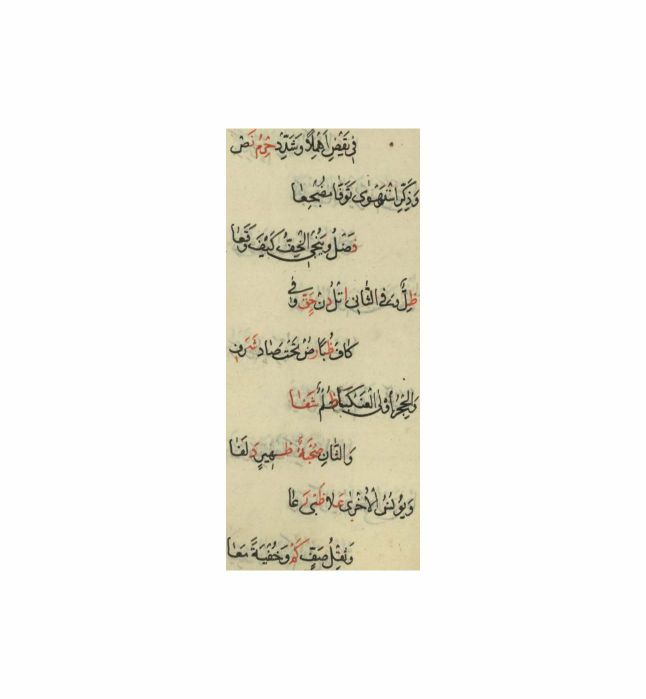 في يَقْضِ أَهْمِلاً وَشَدِّد حِرْمُ نَصّ
وَذَكِّرِ اسْتَهْوى تَوَفَّا مُضْجِعا
فَضْلُ وَيُنْجِي الْخِفُّ كَيْفَ وَقَعَا
ظِلٌّ وَفِي الثَّانِ اتْلُ مِنْ حَقٍّ وَفِي
كَافَ ظُبًا رُضْ تَحْتَ صَادَ شَرَّف
وَالحِجْرُ أُولَى الْعَنْكَبَا ظُلْمٌ شَفَا
وَالثَّانِ صُحْبَةٌ ظَهِيرٍ دَلَفَا
وَيُونُسُ الأُخْرَى عَلا ظَبْيٌ رَعَا
وَثِقْلُ صَفٍّ كَمْ وَخُفْيَةً مَعَا